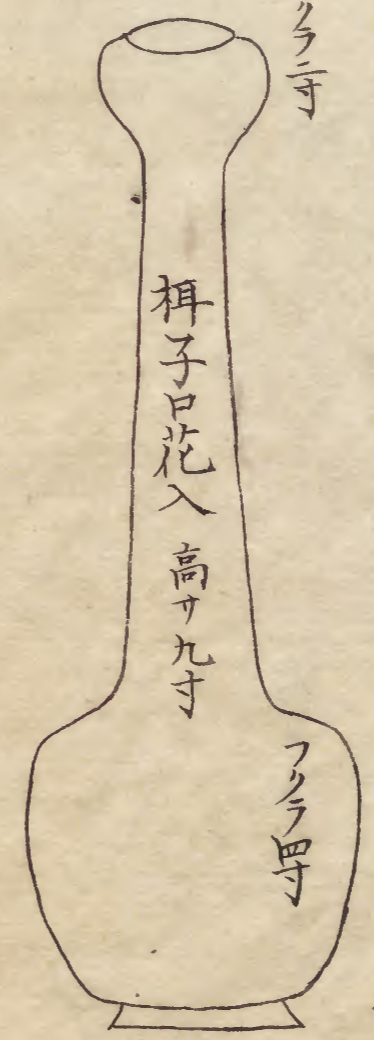 クラ二寸
柤子口花入 高サ九寸
フクラ四寸